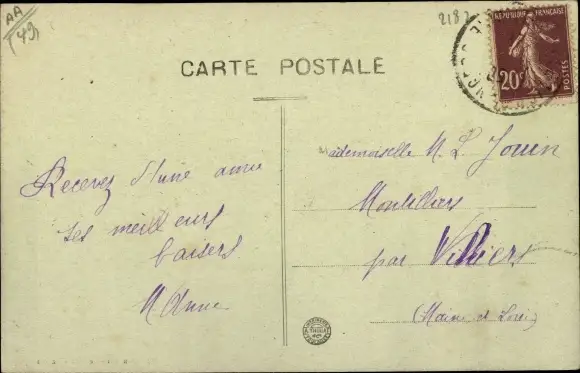 AA
(49)
2182
RÉPUBLIQUE FRANÇAISE
20c
POSTES
CARTE POSTALE
Recevez d'une amie
ses meilleurs
baisers
Mademoiselle M. L. Jouin
Montilliers
par Vihiers
(Maine et Loire)